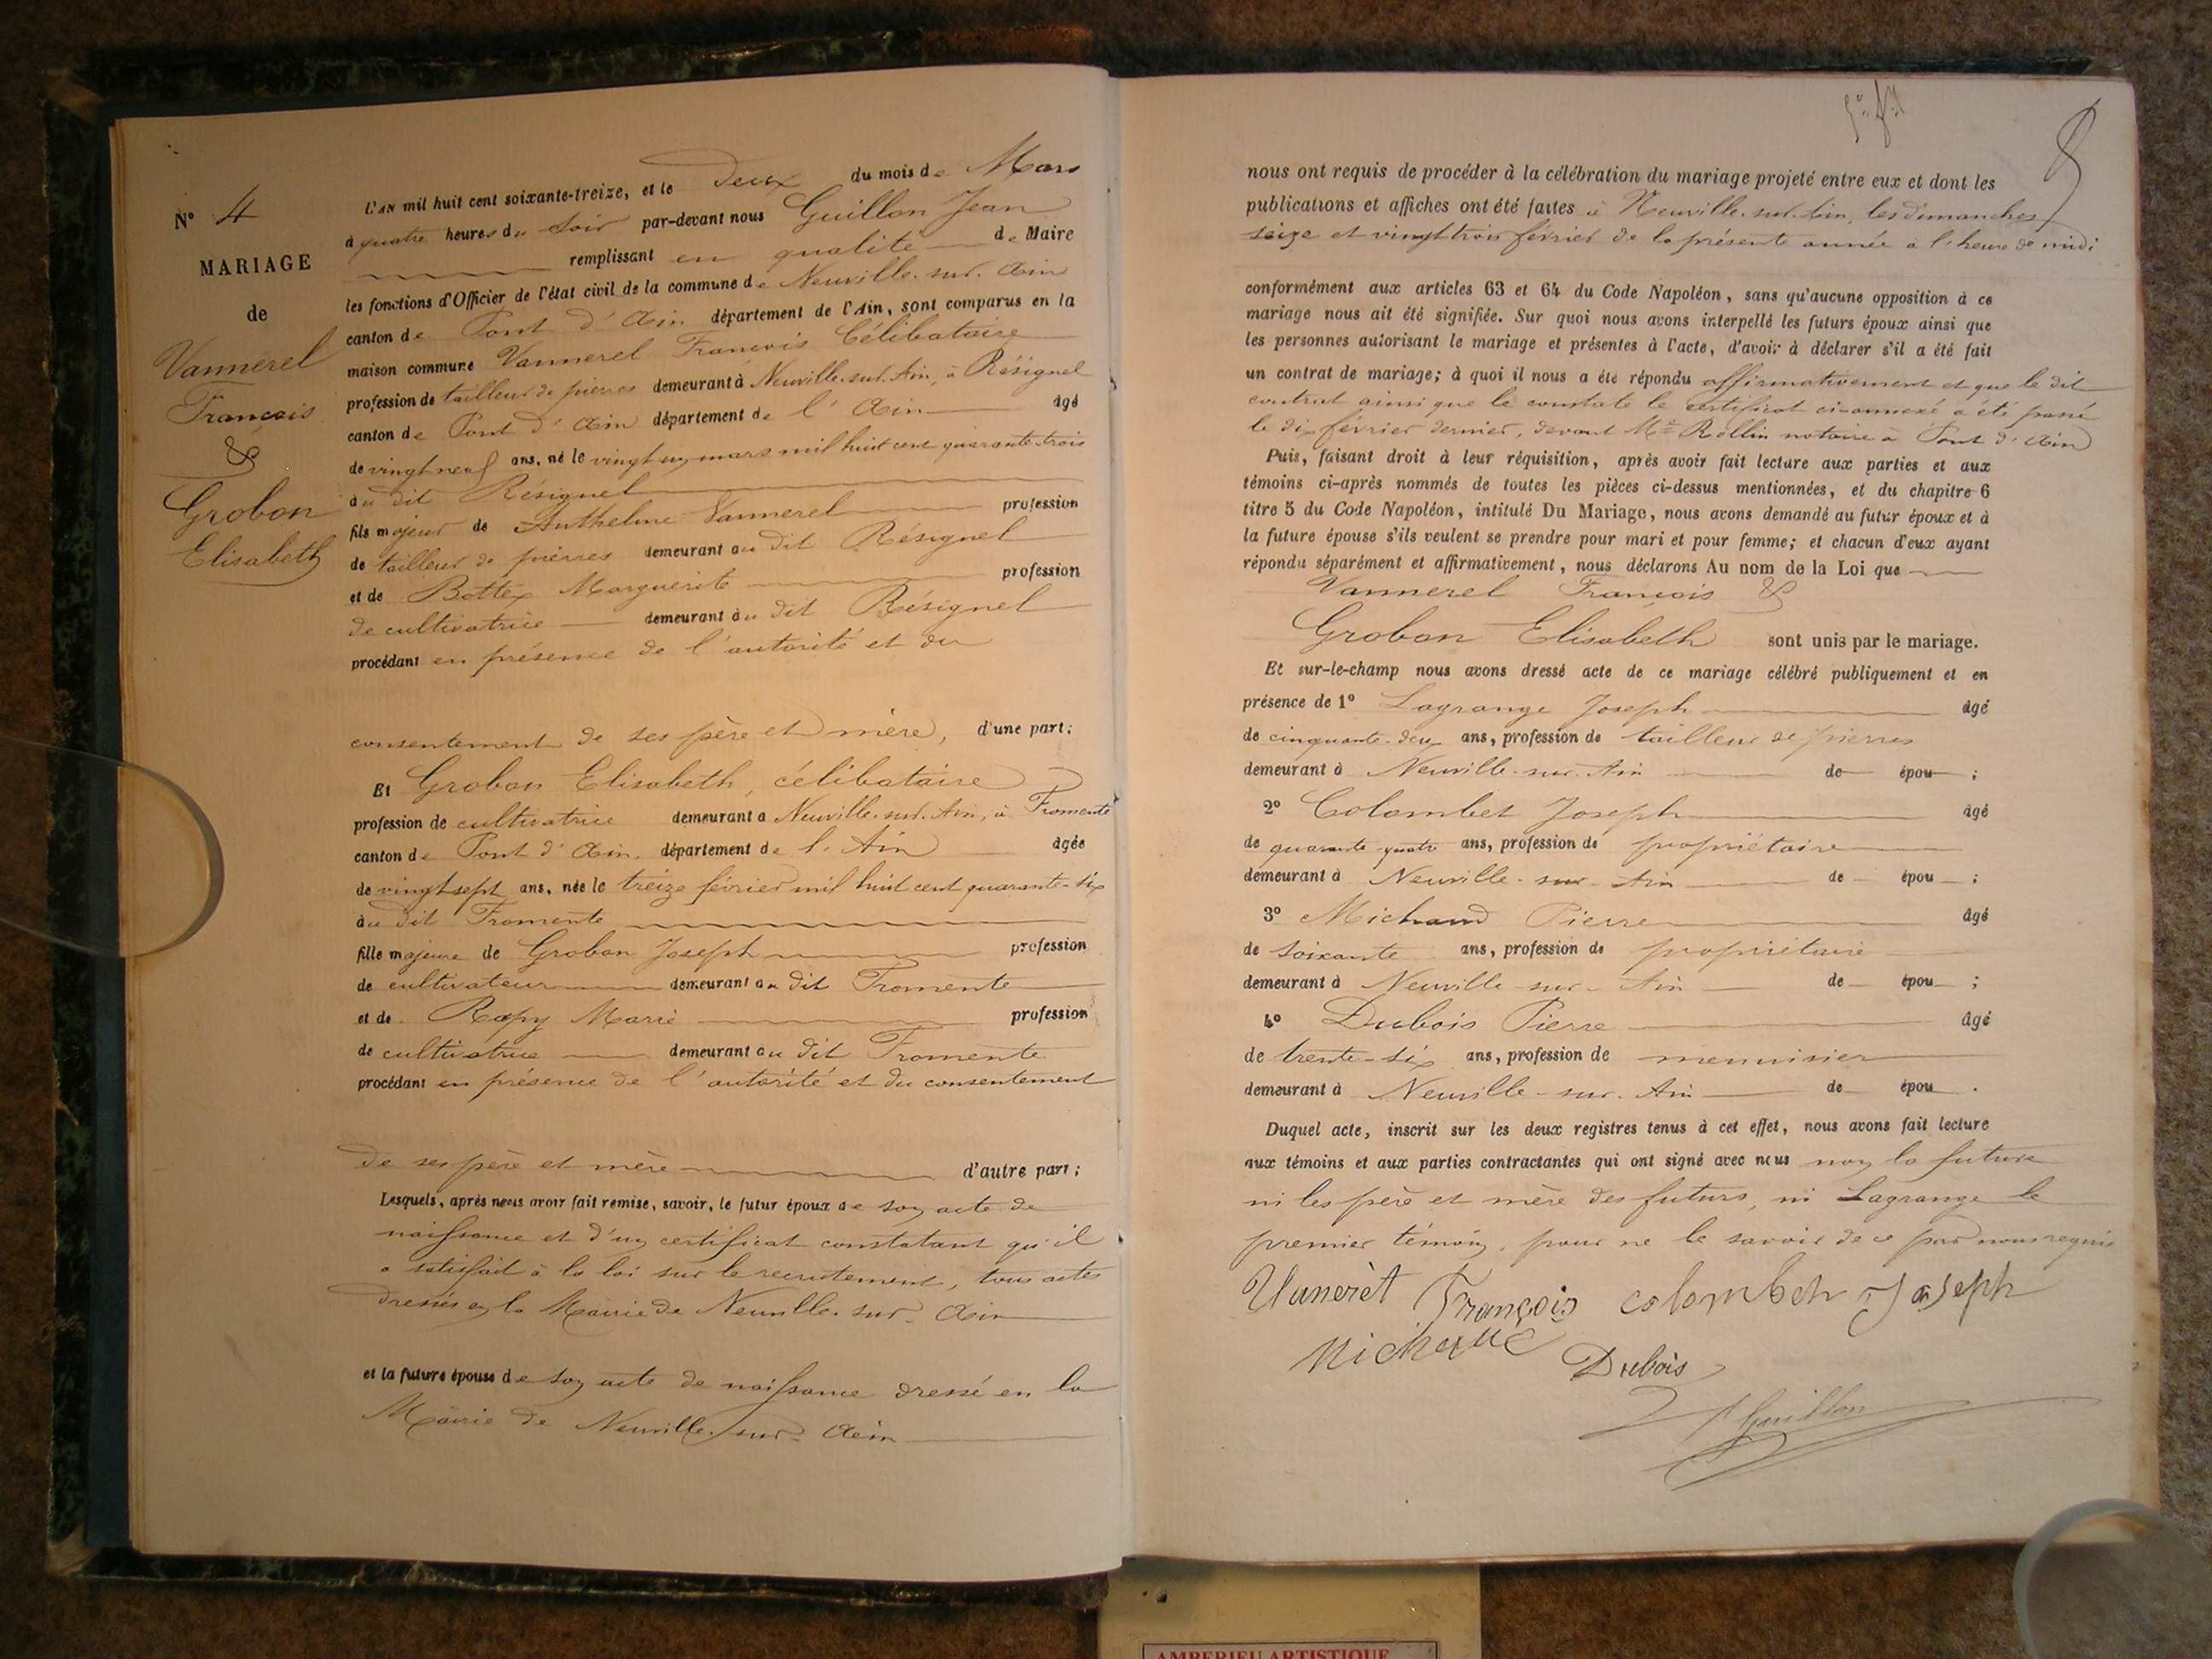 N° 4
MARIAGE
de
Vannerel
François
&
Grobon
Elisabeth
L'AN mil huit cent soixante-treize, et le Deux du mois de Mars
à quatre heures du soir par-devant nous Guillon Jean
remplissant en qualité de Maire
les fonctions d'Officier de l'état civil de la commune de Neuville-sur-Ain
canton de Pont d'Ain département de l'Ain, sont comparus en la
maison commune Vannerel François Célibataire
profession de tailleur de pierres demeurant à Neuville-sur-Ain, à Résignel
canton de Pont d'Ain département de l'Ain âgé
de vingt neuf ans, né le vingt un mars mil huit cent quarante-trois
au dit Résignel
fils majeur de Anthelme Vannerel profession
de tailleur de pierres demeurant au dit Résignel
et de Bottex Marguerite profession
de cultivatrice demeurant au dit Résignel
procédant en présence de l'autorité et du
consentement de ses père et mère, d'une part;
Et Grobon Elisabeth, célibataire
profession de cultivatrice demeurant à Neuville-sur-Ain, à Fromente
canton de Pont d'Ain, département de l'Ain âgée
de vingt sept ans, née le treize février mil huit cent quarante-six
au dit Fromente
fille majeure de Grobon Joseph profession
de cultivateur demeurant au dit Fromente
et de Rapy Marie profession
de cultivatrice demeurant au dit Fromente
procédant en présence de l'autorité et du consentement
de ses père et mère d'autre part;
Lesquels, après nous avoir fait remise, savoir, le futur époux de son acte de
naissance et d'un certificat constatant qu'il
a satisfait à la loi sur le recrutement, tous actes
dressés en la Mairie de Neuville-sur-Ain
et la future épouse de son acte de naissance dressé en la
Mairie de Neuville-sur-Ain
nous ont requis de procéder à la célébration du mariage projeté entre eux et dont les
publications et affiches ont été faites à Neuville-sur-Ain, les dimanches
seize et vingt trois février de la présente année à l'heure de midi
conformément aux articles 63 et 64 du Code Napoléon, sans qu'aucune opposition à ce
mariage nous ait été signifiée. Sur quoi nous avons interpellé les futurs époux ainsi que
les personnes autorisant le mariage et présentes à l'acte, d'avoir à déclarer s'il a été fait
un contrat de mariage; à quoi il nous a été répondu affirmativement et que le dit
contrat ainsi que le constate le certificat ci-annexé a été passé
le dix février dernier, devant Me Rollin notaire à Pont d'Ain
Puis, faisant droit à leur réquisition, après avoir fait lecture aux parties et aux
témoins ci-après nommés de toutes les pièces ci-dessus mentionnées, et du chapitre 6
titre 5 du Code Napoléon, intitulé Du Mariage, nous avons demandé au futur époux et à
la future épouse s'ils veulent se prendre pour mari et pour femme; et chacun d'eux ayant
répondu séparément et affirmativement, nous déclarons Au nom de la Loi que
Vannerel François &
Grobon Elisabeth sont unis par le mariage.
Et sur-le-champ nous avons dressé acte de ce mariage célébré publiquement et en
présence de 1° Lagrange Joseph âgé
de cinquante-deux ans, profession de tailleur de pierres
demeurant à Neuville-sur-Ain de épou ;
2° Colombet Joseph âgé
de quarante-quatre ans, profession de propriétaire
demeurant à Neuville-sur-Ain de épou ;
3° Michaud Pierre âgé
de soixante ans, profession de propriétaire
demeurant à Neuville-sur-Ain de épou ;
4° Dubois Pierre âgé
de trente-six ans, profession de menuisier
demeurant à Neuville-sur-Ain de épou .
Duquel acte, inscrit sur les deux registres tenus à cet effet, nous avons fait lecture
aux témoins et aux parties contractantes qui ont signé avec nous non la future
ni les père et mère des futurs, ni Lagrange le
premier témoin, pour ne le savoir de ce par nous requis
Vanerèt François colombet Joseph
Michaud
Dubois
Guillon
AMBERIEU ARTISTIQUE